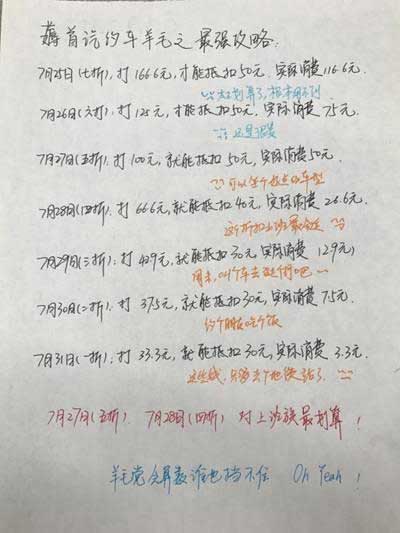 薅首汽约车羊毛之最强攻略:
7月25日(七折),打166.6元,才能抵扣50元.实际消费116.6元.
太不划算了,根本用不到
7月26日(六折),打125元,才能抵扣50元,实际消费75元.
还是浪费
7月27日(五折),打100元,就能抵扣50元,实际消费50元.
可以坐个好点的车型
7月28日(四折).打66.6元,就能抵扣40元,实际消费26.6元.
这个折扣上班最合适
7月29日(三折):打42.9元,就能抵扣30元,实际消费12.9元)
周末,叫个车去逛个街吧
7月30日(二折),打37.5元,就能抵扣30元,实际消费7.5元.
约个朋友吃个饭
7月31日(一折):打33.3元,就能抵扣30元,实际消费3.3元.
这些钱,只够去个地铁站了.
7月27日(五折).7月28日(四折)对上班族最划算!
羊毛党会算数谁也挡不住 Oh Yeah!